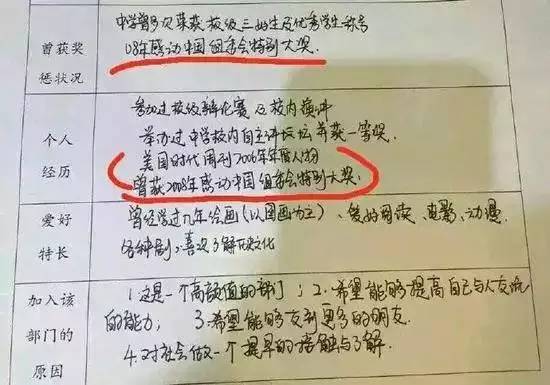 曾获奖
惩状况
中学曾多次荣获校级三好生及优秀学生称号
08年感动中国组委会特别大奖.
个人
经历
参加过校级辩论赛及校内演讲
举办过中学校内自主评坛并获一等奖.
美国时代周刊2006年年度人物
曾获2008年感动中国组委会特别大奖.
爱好
特长
曾经学过几年绘画(以国画为主)、爱好阅读、电影、动漫
各种剧;喜欢了解文化
加入该
部门的
原因
1.这是一个高颜值的部门;2.希望能够提高自己与人交流
的能力; 3.希望能够交到更多的朋友.
4.对社会做一个提早的接触与了解.